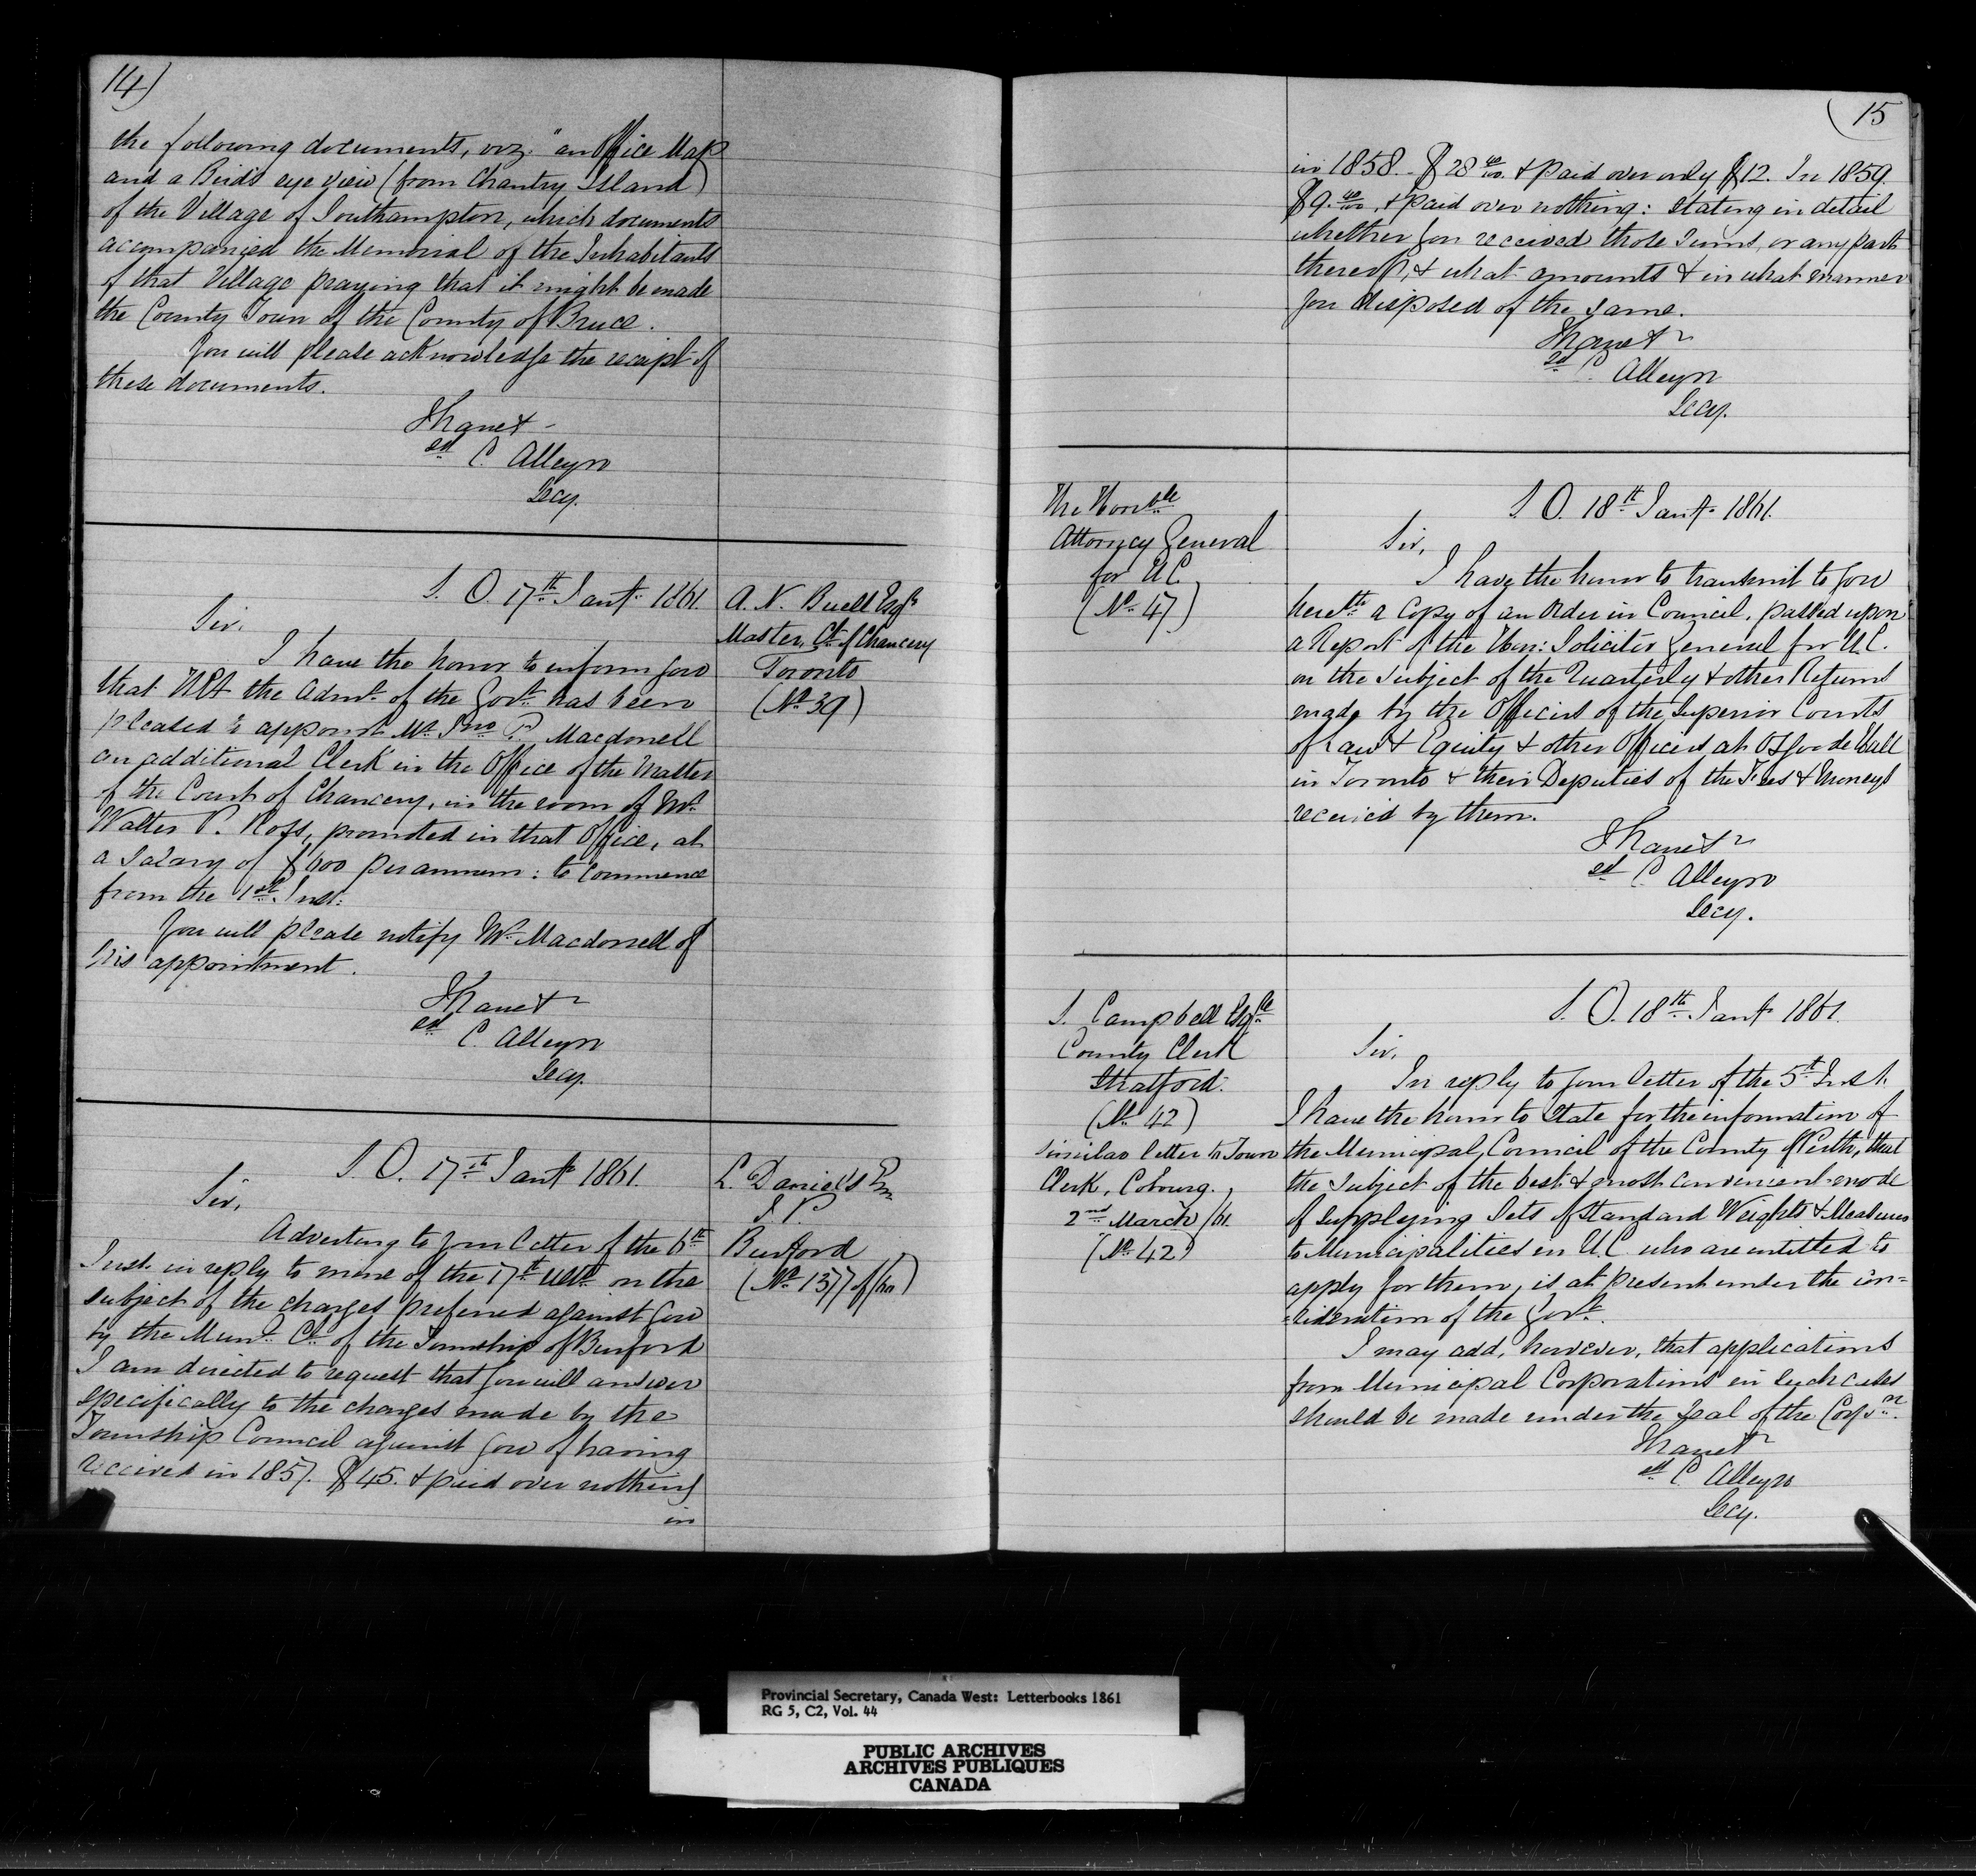 14)
the following documents, viz. "an Office Map
and a Bird's eye view (from Chantry Island)
of the Village of Southampton, which documents
accompanied the Memorial of the Inhabitants
of that Village praying that it might be made
the County Town of the County of Bruce.
You will please acknowledge the receipt of
these documents.
I have &
sd C. Alleyn
Secy.
S. O. 17th Jany. 1861.
A. N. Buell Esqr
Master, Ct. of Chancery
Toronto
(No. 39)
Sir,
I have the honor to inform you
that HEx the Admr. of the Govt. has been
pleased to appoint Mr. Jno P. Macdonell
an additional Clerk in the Office of the Master
of the Court of Chancery, in the room of Mr.
Walter P. Ross, promoted in that Office, at
a Salary of $600 per annum: to commence
from the 1st. Inst.
You will please notify Mr. Macdonell of
his appointment.
I have &
sd C. Alleyn
Secy.
S. O. 17th Jany 1861.
L. Daniels
J. P.
Burford
(No. 1377 of/60)
Sir,
Adverting to your letter of the 6th
Inst. in reply to mine of the 17th Ulto. on the
subject of the charges preferred against you
by the Munl. Cl. of the Township of Burford
I am directed to request that you will answer
specifically to the charges made by the
Township Council against you of having
received in 1857. $45. & paid over nothing
in
15
in 1858. $28 40/100. & paid over only $12. In 1859.
$9. 40/100, & paid over nothing: stating in detail
whether you received those sums, or any part
thereof, & what amounts & in what manner
you disposed of the same.
I have &
sd C. Alleyn
Secy.
The Honble
Attorney General
for U.C.
(No. 47)
S. O. 18th Jany. 1861.
Sir,
I have the honor to transmit to you
herewth a Copy of an Order in Council, passed upon
a Report of the Hon: Solicitor General for U.C.
on the subject of the Quarterly & other Returns
made by the Officers of the Superior Courts
of Law & Equity & other Officers at Osgoode Hall
in Toronto & their Deputies of the Fees & Moneys
received by them.
I have &
sd C. Alleyn
Secy.
S. Campbell Esqre
County Clerk
Stratford.
(No. 42)
similar letter to Town
Clerk, Cobourg.,
2nd March/61.
(No. 42)
S. O. 18th. Jany 1861.
Sir,
In reply to your letter of the 5th Inst.
I have the honor to state for the information of
the Municipal Council of the County of Perth, that
the subject of the best & most convenient mode
of supplying Sets of Standard Weights & Measures
to Municipalities in U.C. who are entitled to
apply for them, is at present under the con=
=sideration of the Govt.
I may add, however, that applications
from Municipal Corporations in such cases
should be made under the Seal of the Corpon.
I have &
sd C. Alleyn
Secy.
Provincial Secretary, Canada West: Letterbooks 1861
RG 5, C2, Vol. 44
PUBLIC ARCHIVES
ARCHIVES PUBLIQUES
CANADA